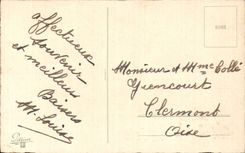 affectueux
souvenir
et meilleurs
Baisers
M. Louise
Monsieur et Mme Collé
Giencourt
Clermont
Oise